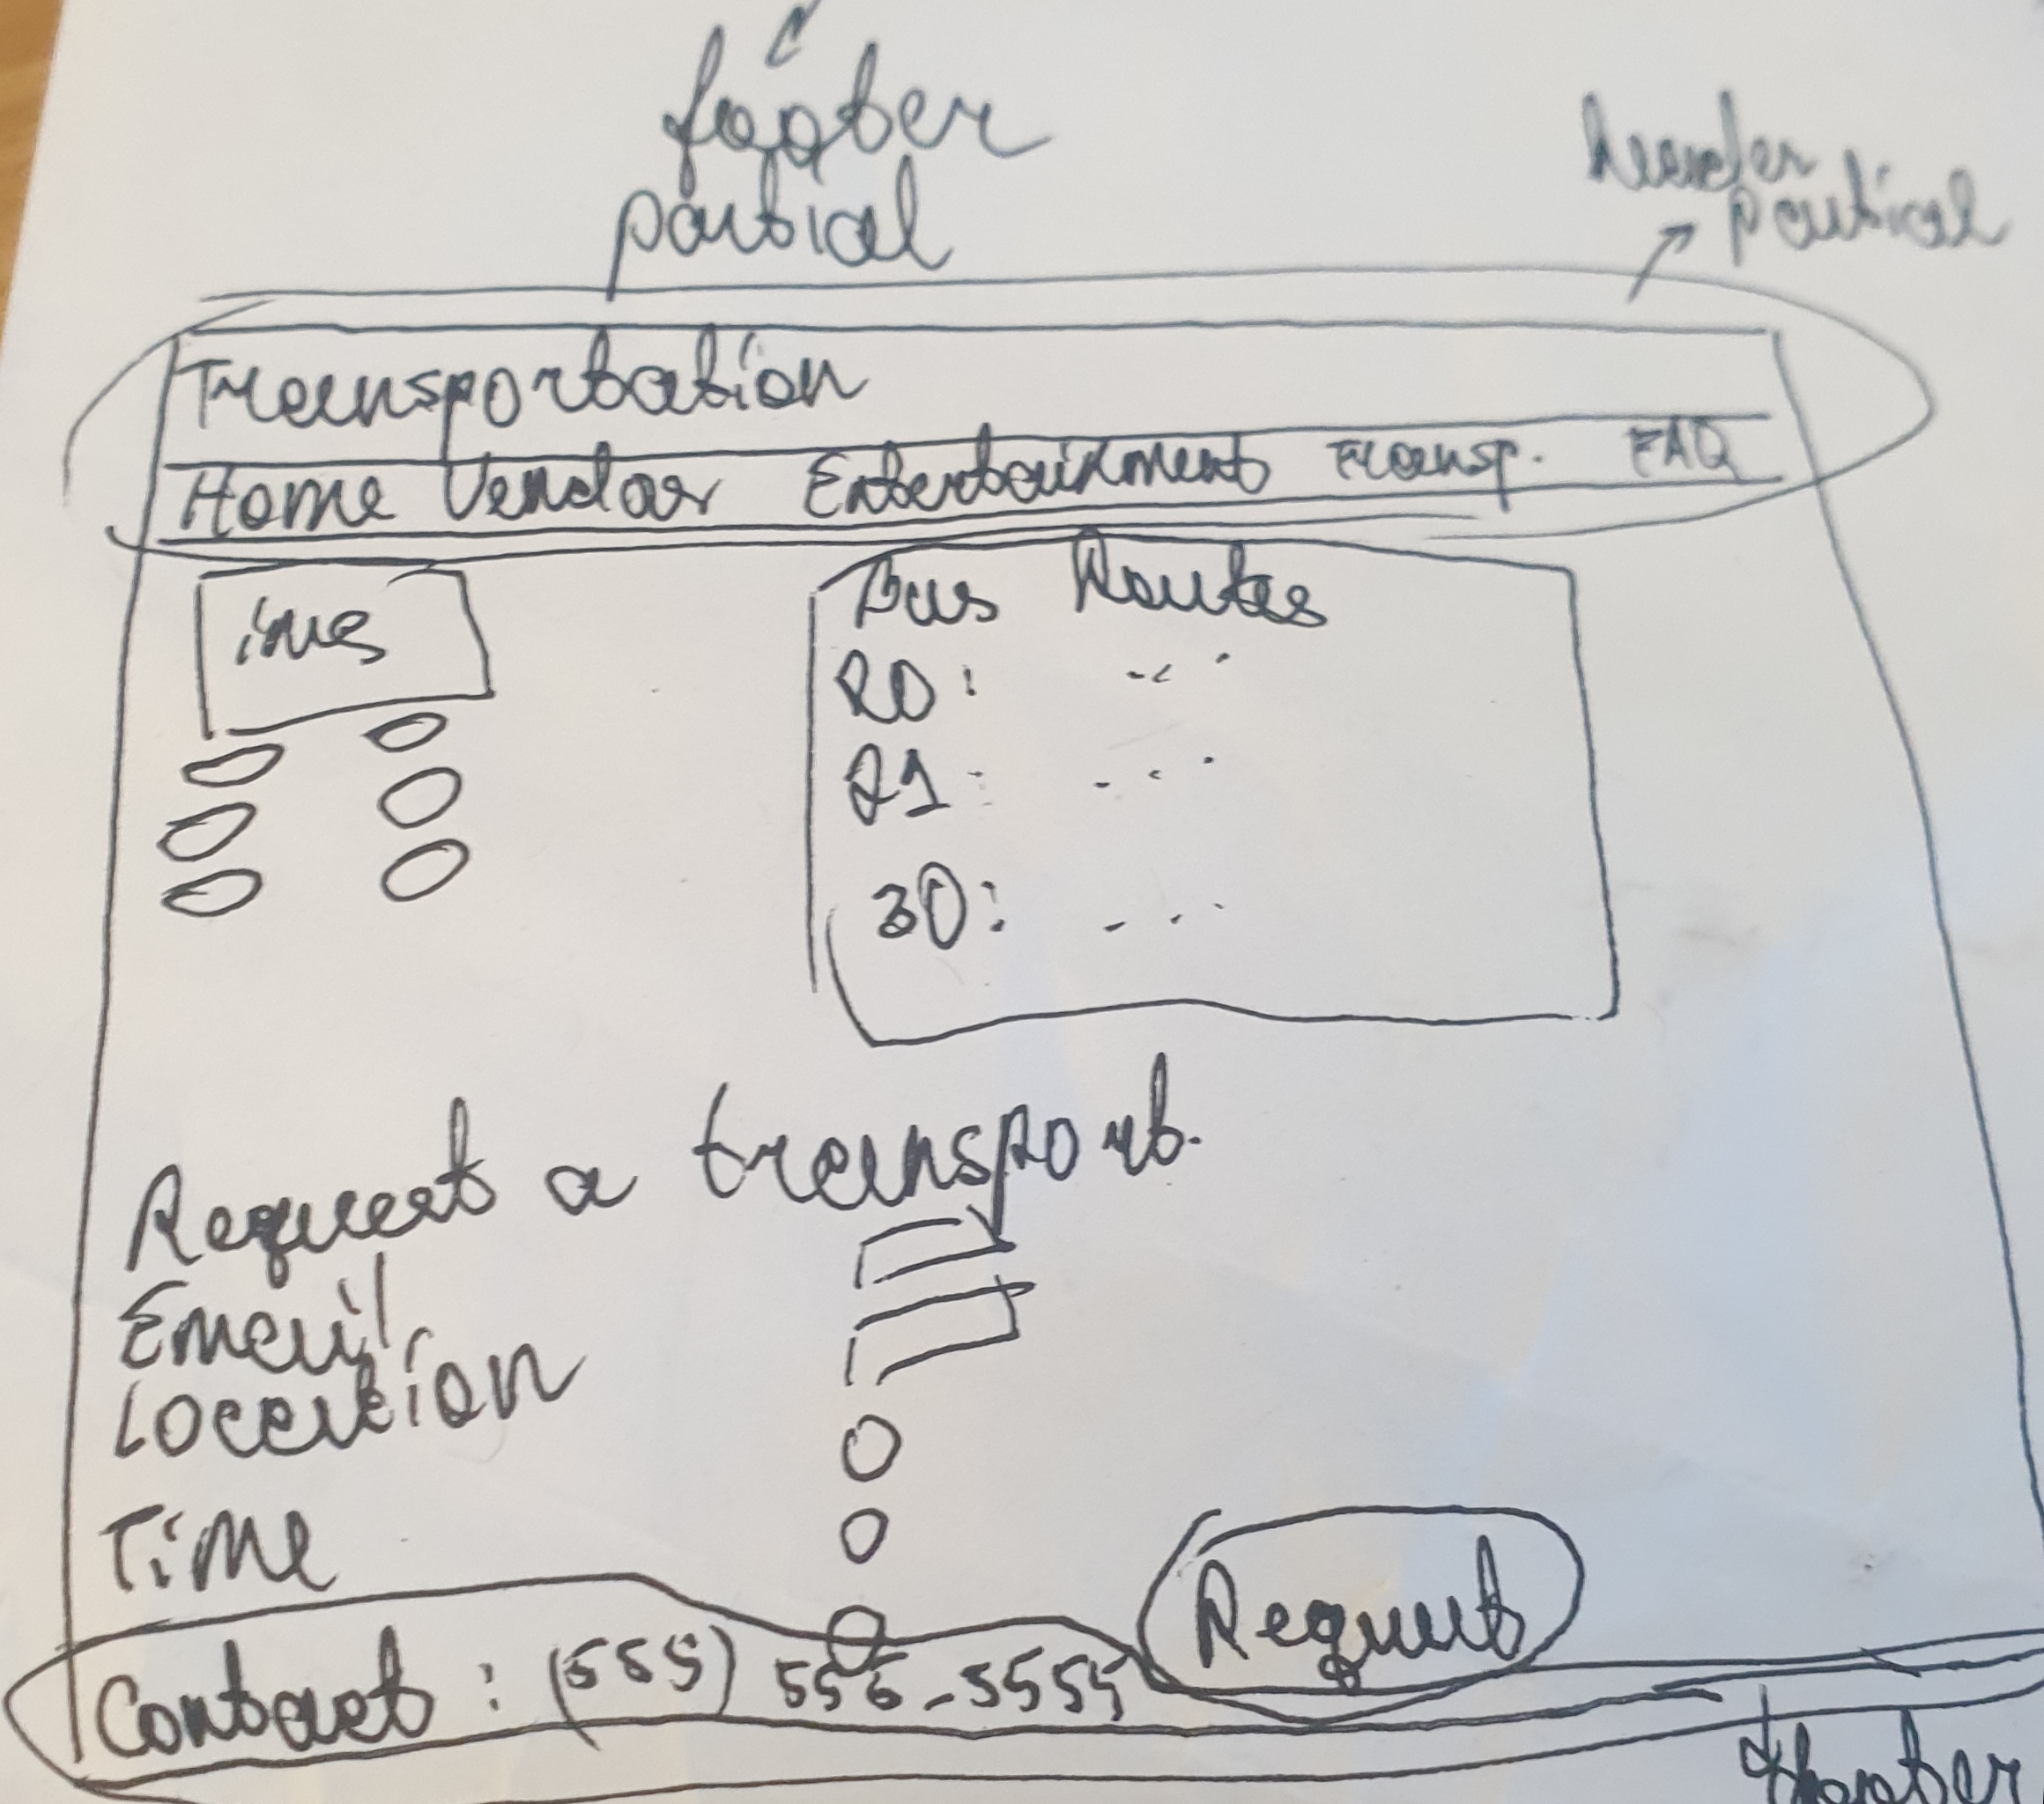 footer
partial
header
partial
Transportation
Home Vendor Entertainment Transp. FAQ
img
Bus Routes
R0: ...
R1: ...
30: ...
Request a transport.
Email
Location
Time
Request
Contact : (555) 555-5555
footer